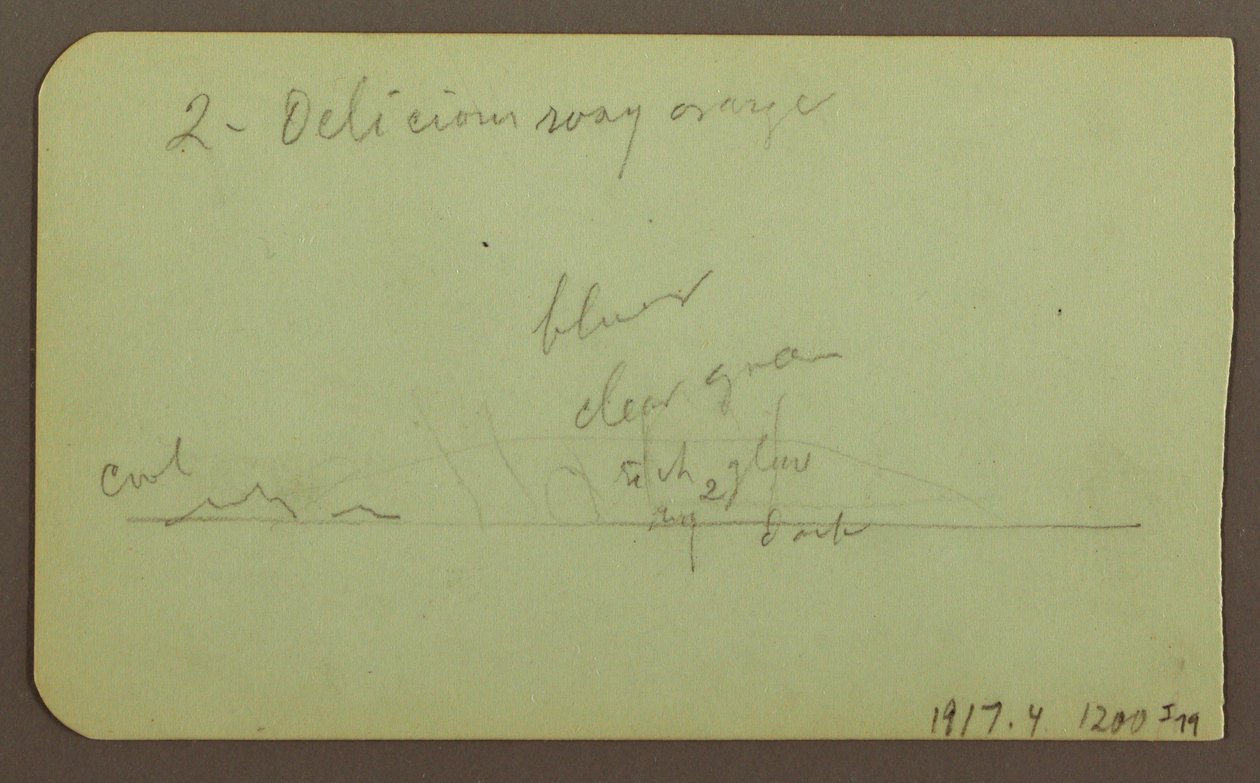 2 - Delicious rosy orange
bluer
clear green
cool
rich 2 glow
dark
1917.4 1200 I 19